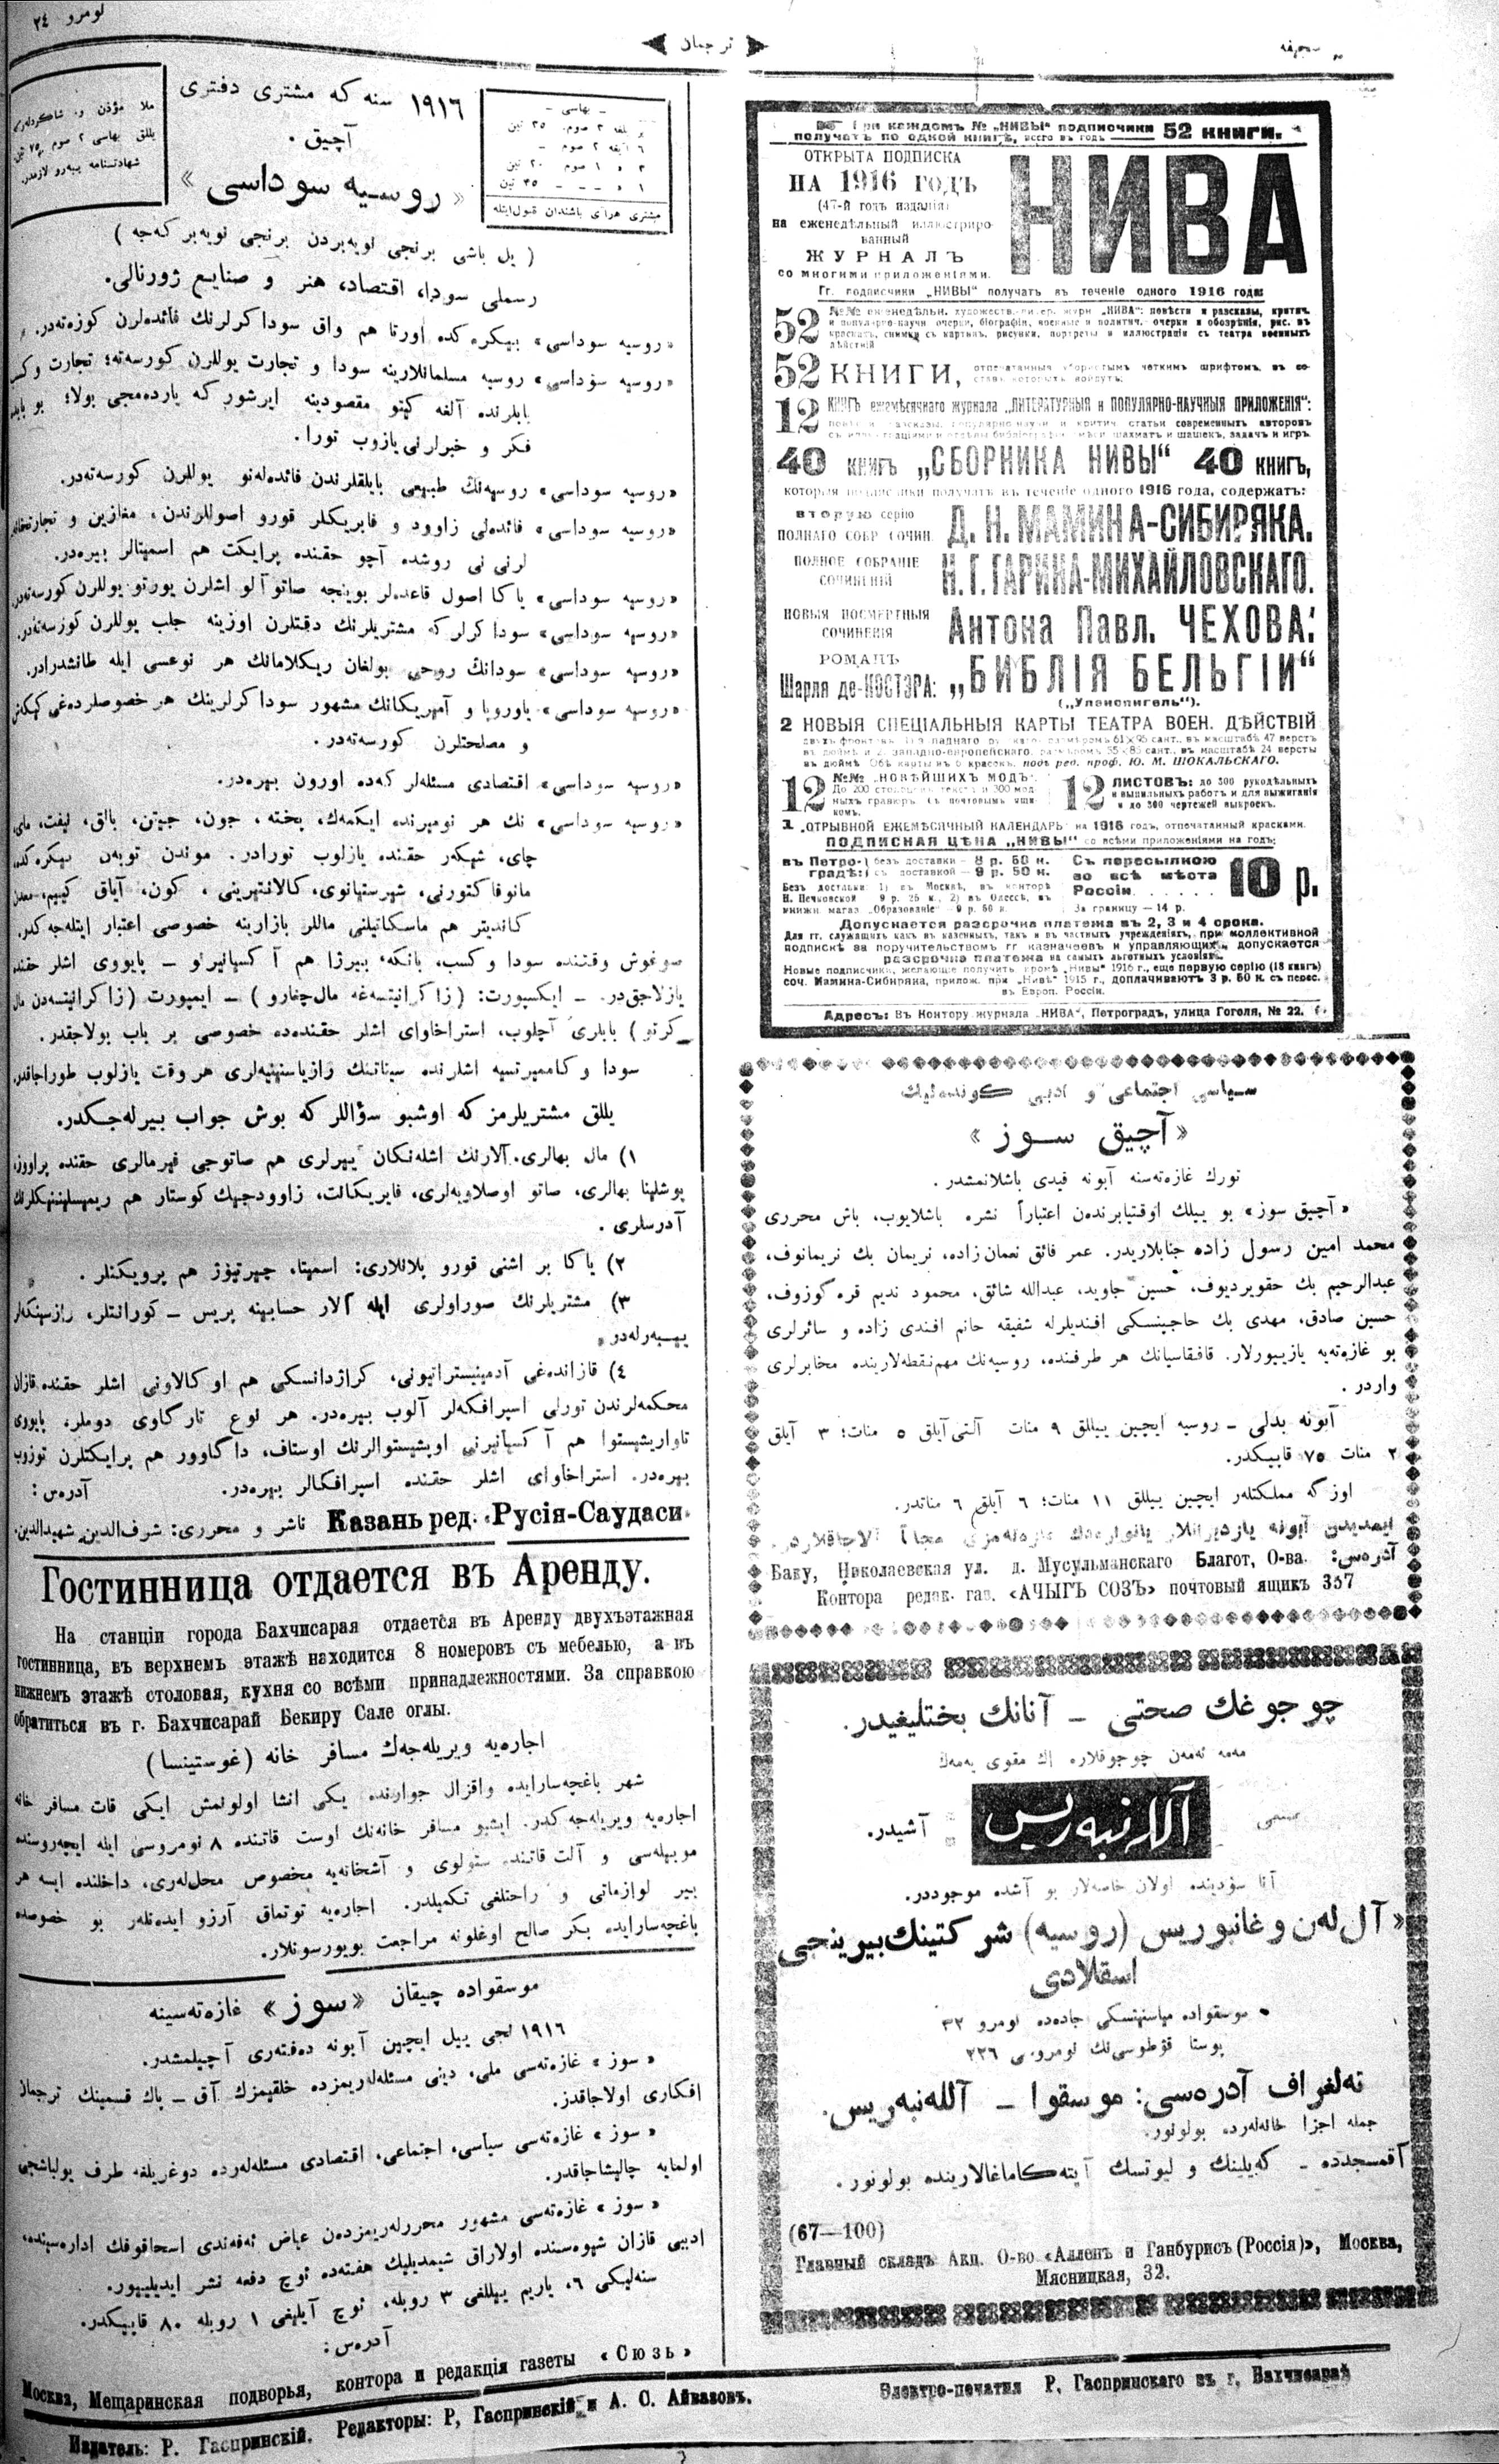 نومرو ٢٤
ترجمان
صحیفه
١٩١٦ سنه كه مشتری دفتری
آچیق .
« روسیه سوداسی »
ملا مؤذن و شاكردلەرگه
یللق بهاسی ٢ صوم ٧٥ تین
شهادتنامه ییبەرو لازمدر.
– بهاسی –
بر یللقه ٣ صوم. ٣٥ تین
٦ آیلقه ٢ صوم –
٣ « ١ صوم ٢٠ تین
١ « – – – ٣٥ تین
مشتری هر آی باشندان قبول ایتله
( یل باشی برنجی نویەبردن برنجی نویەبر كەجه )
رسملی سودا، اقتصاد، هنر و صنایع ژورنالی.
«روسیه سوداسی» بیكرەكدە اورتا هم واق سوداكرلرنك فائدەلرن كوزەتەدر.
«روسیه سوداسی» روسیه مسلمانلارینه سودا و تجارت یوللرن كورسەتە؛ تجارت وكسب
بابلرنده آلغه كیتو مقصودینه ایرشورگه یاردەمجی بولا؛ بو بابدە
فكر و خبرلرنی یازوب تورا.
«روسیه سوداسی» روسیەنك طبیعی بایلقلرندن فائدەلەنو یوللرن كورسەتەدر.
«روسیه سوداسی» فائدەلی زاوود و فابریكلر قورو اصوللرندن، مغازین و تجارتخانه
لرنی نی روشده آچو حقنده پرایكت هم اسمیتالر بیرەدر.
«روسیه سوداسی» یاكا اصول قاعدەلر بوینجه صاتو آلو اشلرن یورتو یوللرن كورسەتەدر.
«روسیه سوداسی» سوداكرلرگه مشتریلرنك دقتلرن اوزینه جلب یوللرن كورسەتەدر.
«روسیه سوداسی» سودانك روحی بولغان ریكلامانك هر نوعسی ایله طانشدرادر.
«روسیه سوداسی» یاوروپا و آمیریكانك مشهور سوداكرلرینك هر خصوصلردەغی كیكاش
و مصلحتلرن كورسەتەدر.
«روسیه سوداسی» اقتصادی مسئلەلرگەدە اورون بیرەدر.
«روسیه سوداسی» نك هر نومیرنده ایكمەك، یخته، جون، جیتن، بالق، لیفت، مای،
چای، شیكەر حقنده یازلوب تورادر. موندن توبەن بیكرەكده
مانوفاكتورنی، شهرستیانوی، كالانتیرینی، كون، آیاق كییم، معدن
كاندیتر هم ماسكاتیلنی ماللر بازارینه خصوصی اعتبار ایتلەجەكدر.
صوغوش وقتنده سودا و كسب، بانكه، بیرزا هم آكسیانیرنو – پایووی اشلر حقنده
یازلاجقدر. – ایكسپورت: (زاكرانیتسەغه مال چغارو) – ایمپورت (زاكرانیتسەدن مال
كرتو) بابلری آچلوب، استراخاوای اشلر حقندەدە خصوصی بر باب بولاجقدر.
سودا و كاممیرتسیه اشلرنده سیناتنك رازیاسنینیەلری هر وقت یازلوب طوراجاقدر.
یللق مشتریلرمزگه اوشبو سؤاللرگه بوش جواب بیرلەجكدر.
١) مال بهالری. آلارنك اشلەنكان ییرلری هم صاتوچی فیرمالری حقنده پراووز،
پوشلینا بهالری، صاتو اوصلاویەلری، فابریكانت، زاوودجیك كوستار هم ریمیسلیننیكلرنك
آدرسلری .
٢) یاكا بر اشنی قورو پلانلاری: اسمیتا، چیرتیوژ هم پرویكتلر .
٣) مشتریلرنك صوراولری ایله آلار حسابینه پریس – كورانتلر، رازسینكەلر
ییبەرلەدر
٤) قازاندەغی آدمینیستراتیونی، كراژدانسكی هم اوكالاونی اشلر حقنده قازان
محكمەلرندن تورلی اسپرافكەلر آلوب بیرەدر. هر نوع تارگاوی دوملر، پایووی
تاواریشیستوا هم آكسیانیرنی اوبشیستوالرنك اوستاف، داگاوور هم پرایكتلرن توزوب
بیرەدر. استراخاوای اشلر حقنده اسپرافكالر بیرەدر. آدرس:
Казань ред. «Русія-Саудаси» ناشر و محرری: شرف الدین شهیدالدین.
Гостинница отдается въ Аренду.
На станціи города Бахчисарая отдается въ Аренду двухъэтажная
гостинница, въ верхнемъ этажѣ находится 8 номеровъ съ мебелью, а въ
нижнемъ этажѣ столовая, кухня со всѣми принадлежностями. За справкою
обратиться въ г. Бахчисарай Бекиру Сале оглы.
اجارەیه ویریلەجەك مسافر خانه (غوستینسا)
شهر باغچەسارایده واقزال جوارنده یكی انشا اولونمش ایكی قات مسافر خانه
اجارەیه ویریلەجەكدر. ایشبو مسافر خانەنك اوست قاتنده ٨ نومروسی ایله ایچەروسنده
موبیلەسی و آلت قاتنده ستولوی و آشخانەیه مخصوص محللەری، داخلنده ایسه هر
بیر لوازماتی و راحتلغی تكمیلدر. اجارەیه توتماق آرزو ایدەنلەر بو خصوصده
باغچەسارایده بكر صالح اوغلونه مراجعت بویورسونلار.
موسقواده چیقان «سوز» غازەتەسینه
١٩١٦ نجی ییل ایچین آبونه دەفتەری آچیلمشدر.
« سوز » غازەتەسی ملی، دینی مسئلەلەریمزده خلقیمزك آق – پاك قسمینك ترجمان
افكاری اولاجاقدز.
« سوز » غازەتەسی سیاسی، اجتماعی، اقتصادی مسئلەلەرده دوغریلغه طرف یولباشچی
اولمایه چالیشاجاقدر.
« سوز » غازەتەسی مشهور محررلەریمزدەن عیاض ئەفەندی اسحاقوفك ادارەسینده،
ادبی قازان شیوەسنده اولاراق شیمدیلیك هفتەده ئوچ دفعه نشر ایدیلییور.
سنەلیكی ٦، یاریم ییللغی ٣ روبله، ئوچ آیلیغی ١ روبله ٨٠ قاپیكدر.
آدرەس:
Москва, Мещаринская подворья, контора и редакція газеты «Сюзь»
При каждомъ № „НИВЫ" подписчики
получатъ по одной книгѣ, всего въ годъ — 52 книги.
ОТКРЫТА ПОДПИСКА
НА 1916 ГОДЪ
(47-й годъ изданія)
на еженедѣльный иллюстриро-
ванный
ЖУРНАЛЪ
со многими приложеніями.
НИВА
Гг. подписчики „НИВЫ" получатъ въ теченіе одного 1916 года:
52 №№ еженедѣльн. художеств.-литер. журн „НИВА": повѣсти и разсказы, критич.
и популярно-научн очерки, біографіи, военные и политич. очерки и обозрѣнія, рис. въ
краскахъ, снимки съ картинъ, рисунки, портреты и иллюстраціи съ театра военныхъ
дѣйствій
52 КНИГИ, отпечатанныя убористымъ четкимъ шрифтомъ, въ со-
ставъ которыхъ войдутъ:
12 КНИГЪ ежемѣсячнаго журнала „ЛИТЕРАТУРНЫЯ и ПОПУЛЯРНО-НАУЧНЫЯ ПРИЛОЖЕНІЯ":
разсказы, популярно-научн и критич. статьи современныхъ авторовъ
съ иллюстраціями и отдѣлы библіографіи, смѣси, шахматъ и шашекъ, задачъ и игръ.
40 КНИГЪ „СБОРНИКА НИВЫ" 40 КНИГЪ,
которыя подписчики получатъ въ теченіе одного 1916 года, содержатъ:
ВТОРУЮ серію
ПОЛНАГО СОБР СОЧИН. Д. Н. МАМИНА-СИБИРЯКА.
ПОЛНОЕ СОБРАНІЕ
СОЧИНЕНІЙ Н. Г. ГАРИНА-МИХАЙЛОВСКАГО.
НОВЫЯ ПОСМЕРТНЫЯ
СОЧИНЕНІЯ Антона Павл. ЧЕХОВА.
РОМАНЪ
Шарля де-КОСТЭРА: „БИБЛІЯ БЕЛЬГІИ"
(„Уленспигель").
2 НОВЫЯ СПЕЦІАЛЬНЫЯ КАРТЫ ТЕАТРА ВОЕН. ДѢЙСТВІЙ
двухъ фронтовъ размѣромъ 61×95 сант., въ масштабѣ 47 верстъ
въ дюймѣ и 2. западно-европейскаго, размѣромъ 55×85 сант., въ масштабѣ 24 версты
въ дюймѣ Обѣ карты въ 6 красокъ, подъ ред. проф. Ю. М. ШОКАЛЬСКАГО.
12 №№ „НОВѢЙШИХЪ МОДЪ".
До 200 столбцовъ текста и 300 мод-
ныхъ гравюръ. Съ почтовымъ ящи-
комъ.
12 ЛИСТОВЪ: до 300 рукодѣльныхъ
и выпильныхъ работъ и для выжиганія
и до 300 чертежей выкроекъ.
1 „ОТРЫВНОЙ ЕЖЕМѢСЯЧНЫЙ КАЛЕНДАРЬ" на 1916 годъ, отпечатанный красками.
ПОДПИСНАЯ ЦѢНА „НИВЫ" со всѣми приложеніями на годъ:
въ Петро-
градѣ: безъ доставки – 8 р. 50 к.
съ доставкой – 9 р. 50 к.
Безъ доставки: 1) въ Москвѣ, въ конторѣ
Н. Печковской 9 р. 25 к., 2) въ Одессѣ, въ
книжн. магаз. „Образованіе" – 9 р. 50 к.
Съ пересылкою
во всѣ мѣста
Россіи. . . . . . 10 р.
За границу – 14 р.
Допускается разсрочка платежа въ 2, 3 и 4 срока.
Для гг. служащихъ какъ въ казенныхъ, такъ и въ частныхъ учрежденіяхъ, при коллективной
подпискѣ за поручительствомъ гг казначеевъ и управляющихъ, допускается
разсрочка платежа на самыхъ льготныхъ условіяхъ.
Новые подписчики, желающіе получить, кромѣ „Нивы" 1916 г., еще первую серію (18 книгъ)
соч. Мамина-Сибиряка, прилож. при „Нивѣ" 1915 г., доплачиваютъ 3 р. 50 к. съ перес.
въ Европ. Россіи.
Адресъ: Въ Контору журнала „НИВА", Петроградъ, улица Гоголя, № 22.
سیاسی اجتماعی و ادبی كوندەلیك
« آچیق سوز »
تورك غازەتەسنه آبونه قیدی باشلانمشدر .
« آچیق سوز » بو ییلك اوقتیابرندەن اعتباراً نشره باشلایوب، باش محرری
محمد امین رسول زاده جنابلاریدر. عمر فائق نعمان زاده، نریمان بك نریمانوف،
عبدالرحیم بك حقویردیوف، حسین جاوید، عبدالله شائق، محمود ندیم قره كوزوف،
حسین صادق، مهدی بك حاجینسكی افندیلرله شفیقه خانم افندی زاده و سائرلری
بو غازەتەیه یازییورلار. قافقاسیانك هر طرفنده، روسیەنك مهم نقطەلارینده مخابرلری
واردر .
آبونه بدلی – روسیه ایچین ییللق ٩ منات آلتی آیلق ٥ منات؛ ٣ آیلق
٢ منات ٧٥ قاپیكدر.
اوزگه مملكتلەر ایچین ییللق ١١ منات؛ ٦ آیلق ٦ مناتدر.
ایمدیدن آبونه یازدیرانلار یانوارەدك غازەتەمزی مجاناً آلاجاقلاردر.
آدرەس: Баку, Николаевская ул. д. Мусульманскаго Благот, О-ва.
Контора редак. газ. «АЧЫГЪ СОЗЪ» почтовый ящикъ 357
چوجوغك صحتی – آنانك بختلیغیدر.
مەمه ئەمەن چوجوقلاره اك مقوی یەمەك
آللەنبەریس
آشیدر.
آنا سؤدینده اولان خاصەلار بو آشده موجوددر.
« آل لەن وغانبوریس (روسیه) شركتینك بیرینجی
اسقلادی
موسقواده میاسنیتسكی جادەده نومرو ٣٢
پوستا قوطوسی نك نومروسی ٢٢٦
تەلغراف آدرەسی: موسقوا – آللەنبەریس.
جمله اجزا خانەلەرده بولونور.
آقمسجدده – كەیلینك و لیوتسك آپتەكاماغالارینده بولونور .
(67—100)
Главный складъ Акц. О-во «Алленъ и Ганбурисъ (Россія)», Москва,
Мясницкая, 32.
Издатель: Р. Гаспринскій. Редакторы: Р, Гаспринскій и А. С. Айвазовъ.
Электро-печатня Р. Гаспринскаго въ г, Бахчисараѣ